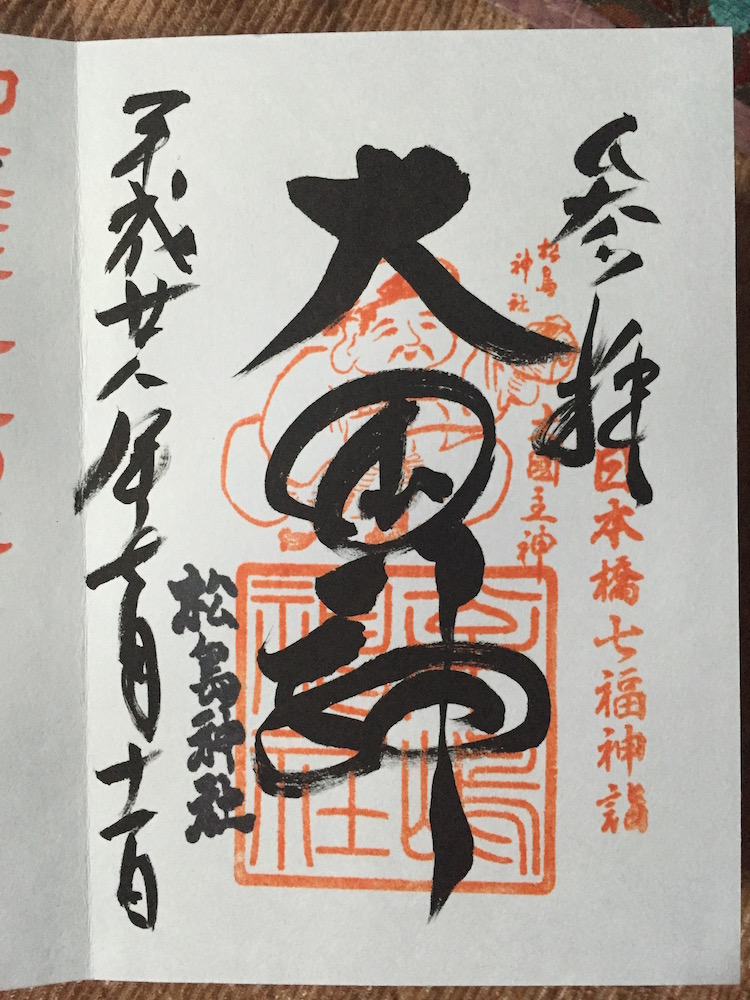 参拝
日本橋七福神詣
松島
神社
大國主神
大国神
松嶋
神社
松島神社
平成廿八年七月十一日